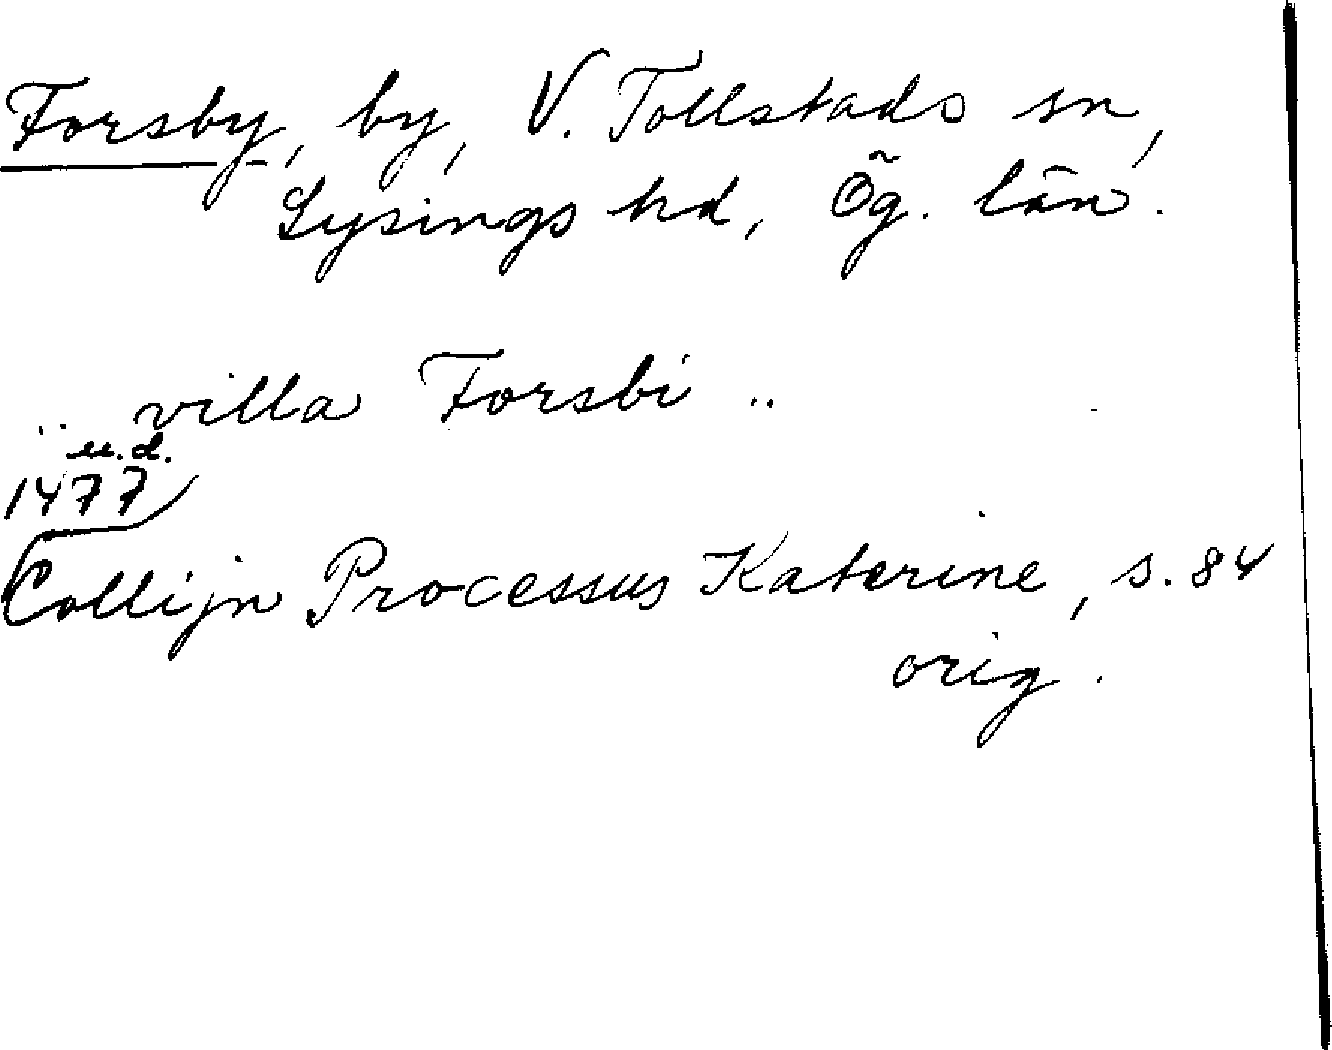 Forsby, by, V. Tollstads sn,
Lysings hd, Ög. län.
.. villa Forsbi ..
u.d.
1477
Collijn Processus Katerine, s. 84
orig.